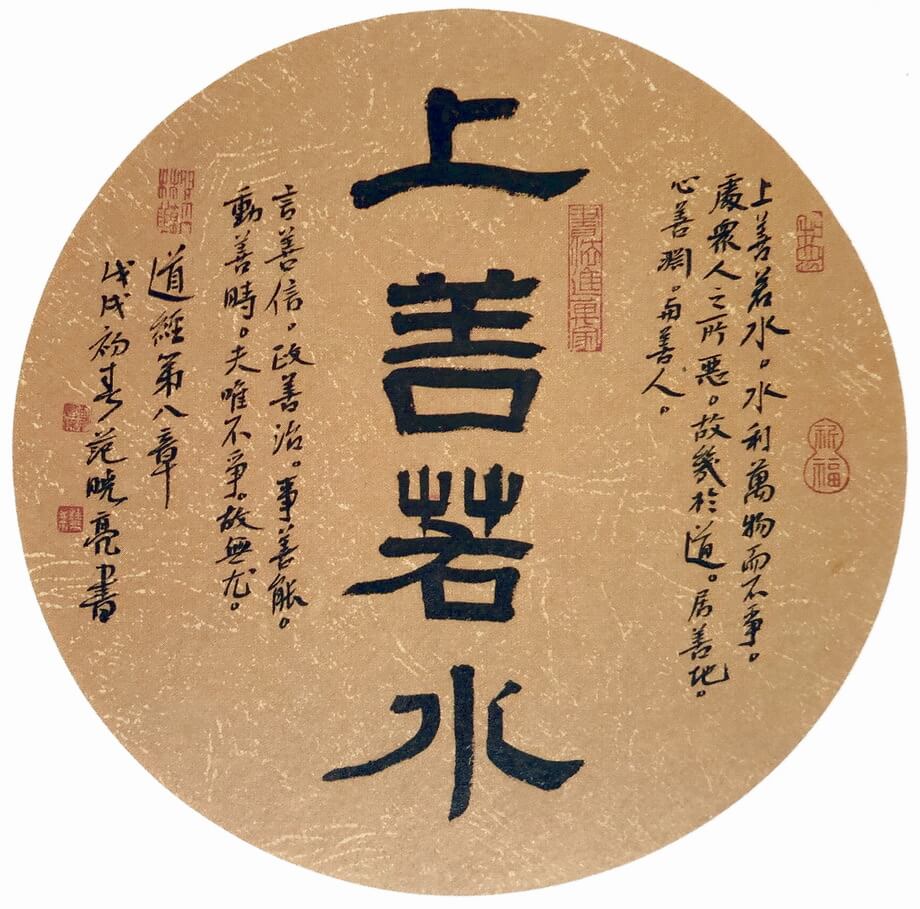 上善若水。水利萬物而不爭。
處衆人之所惡。故幾於道。居善地。
心善淵。与善人。
書法進萬家
祈福
上善若水
言善信。政善治。事善能。
動善時。夫唯不爭。故無尤。
道經第八章
戊戌初春范晓亮書